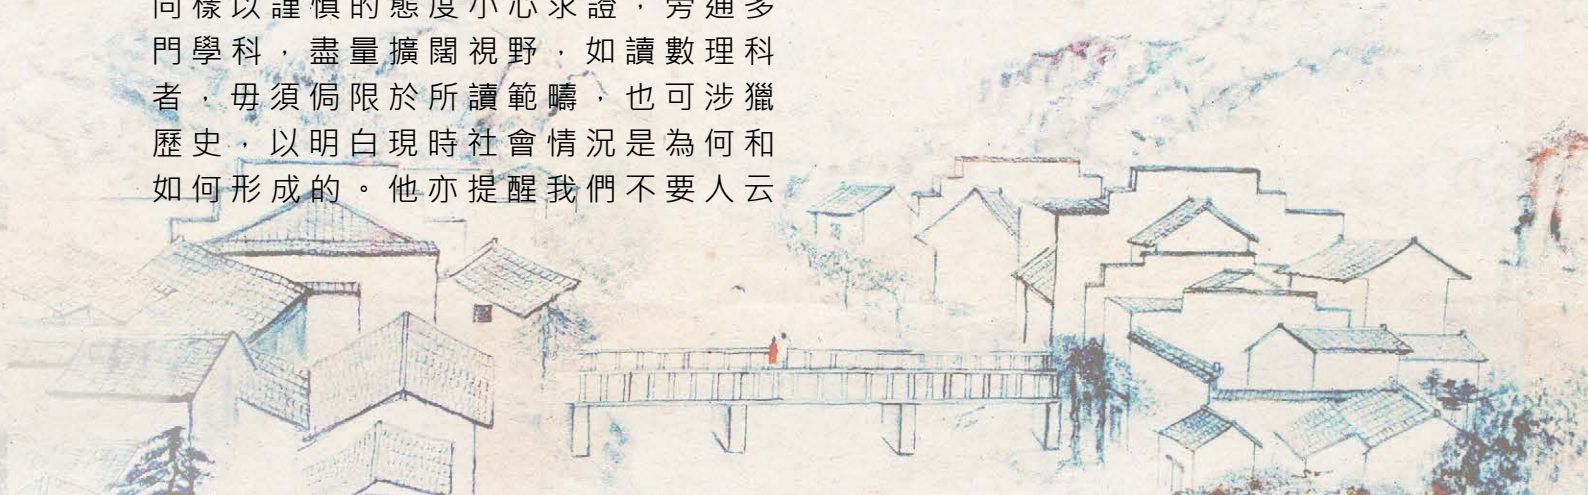 同樣以謹慎的態度小心求證，旁通多
門學科，盡量擴闊視野，如讀數理科
者，毋須侷限於所讀範疇，也可涉獵
歷史，以明白現時社會情況是為何和
如何形成的。他亦提醒我們不要人云